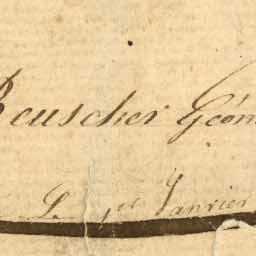 Beuscher Géom
Le 1er Janvier